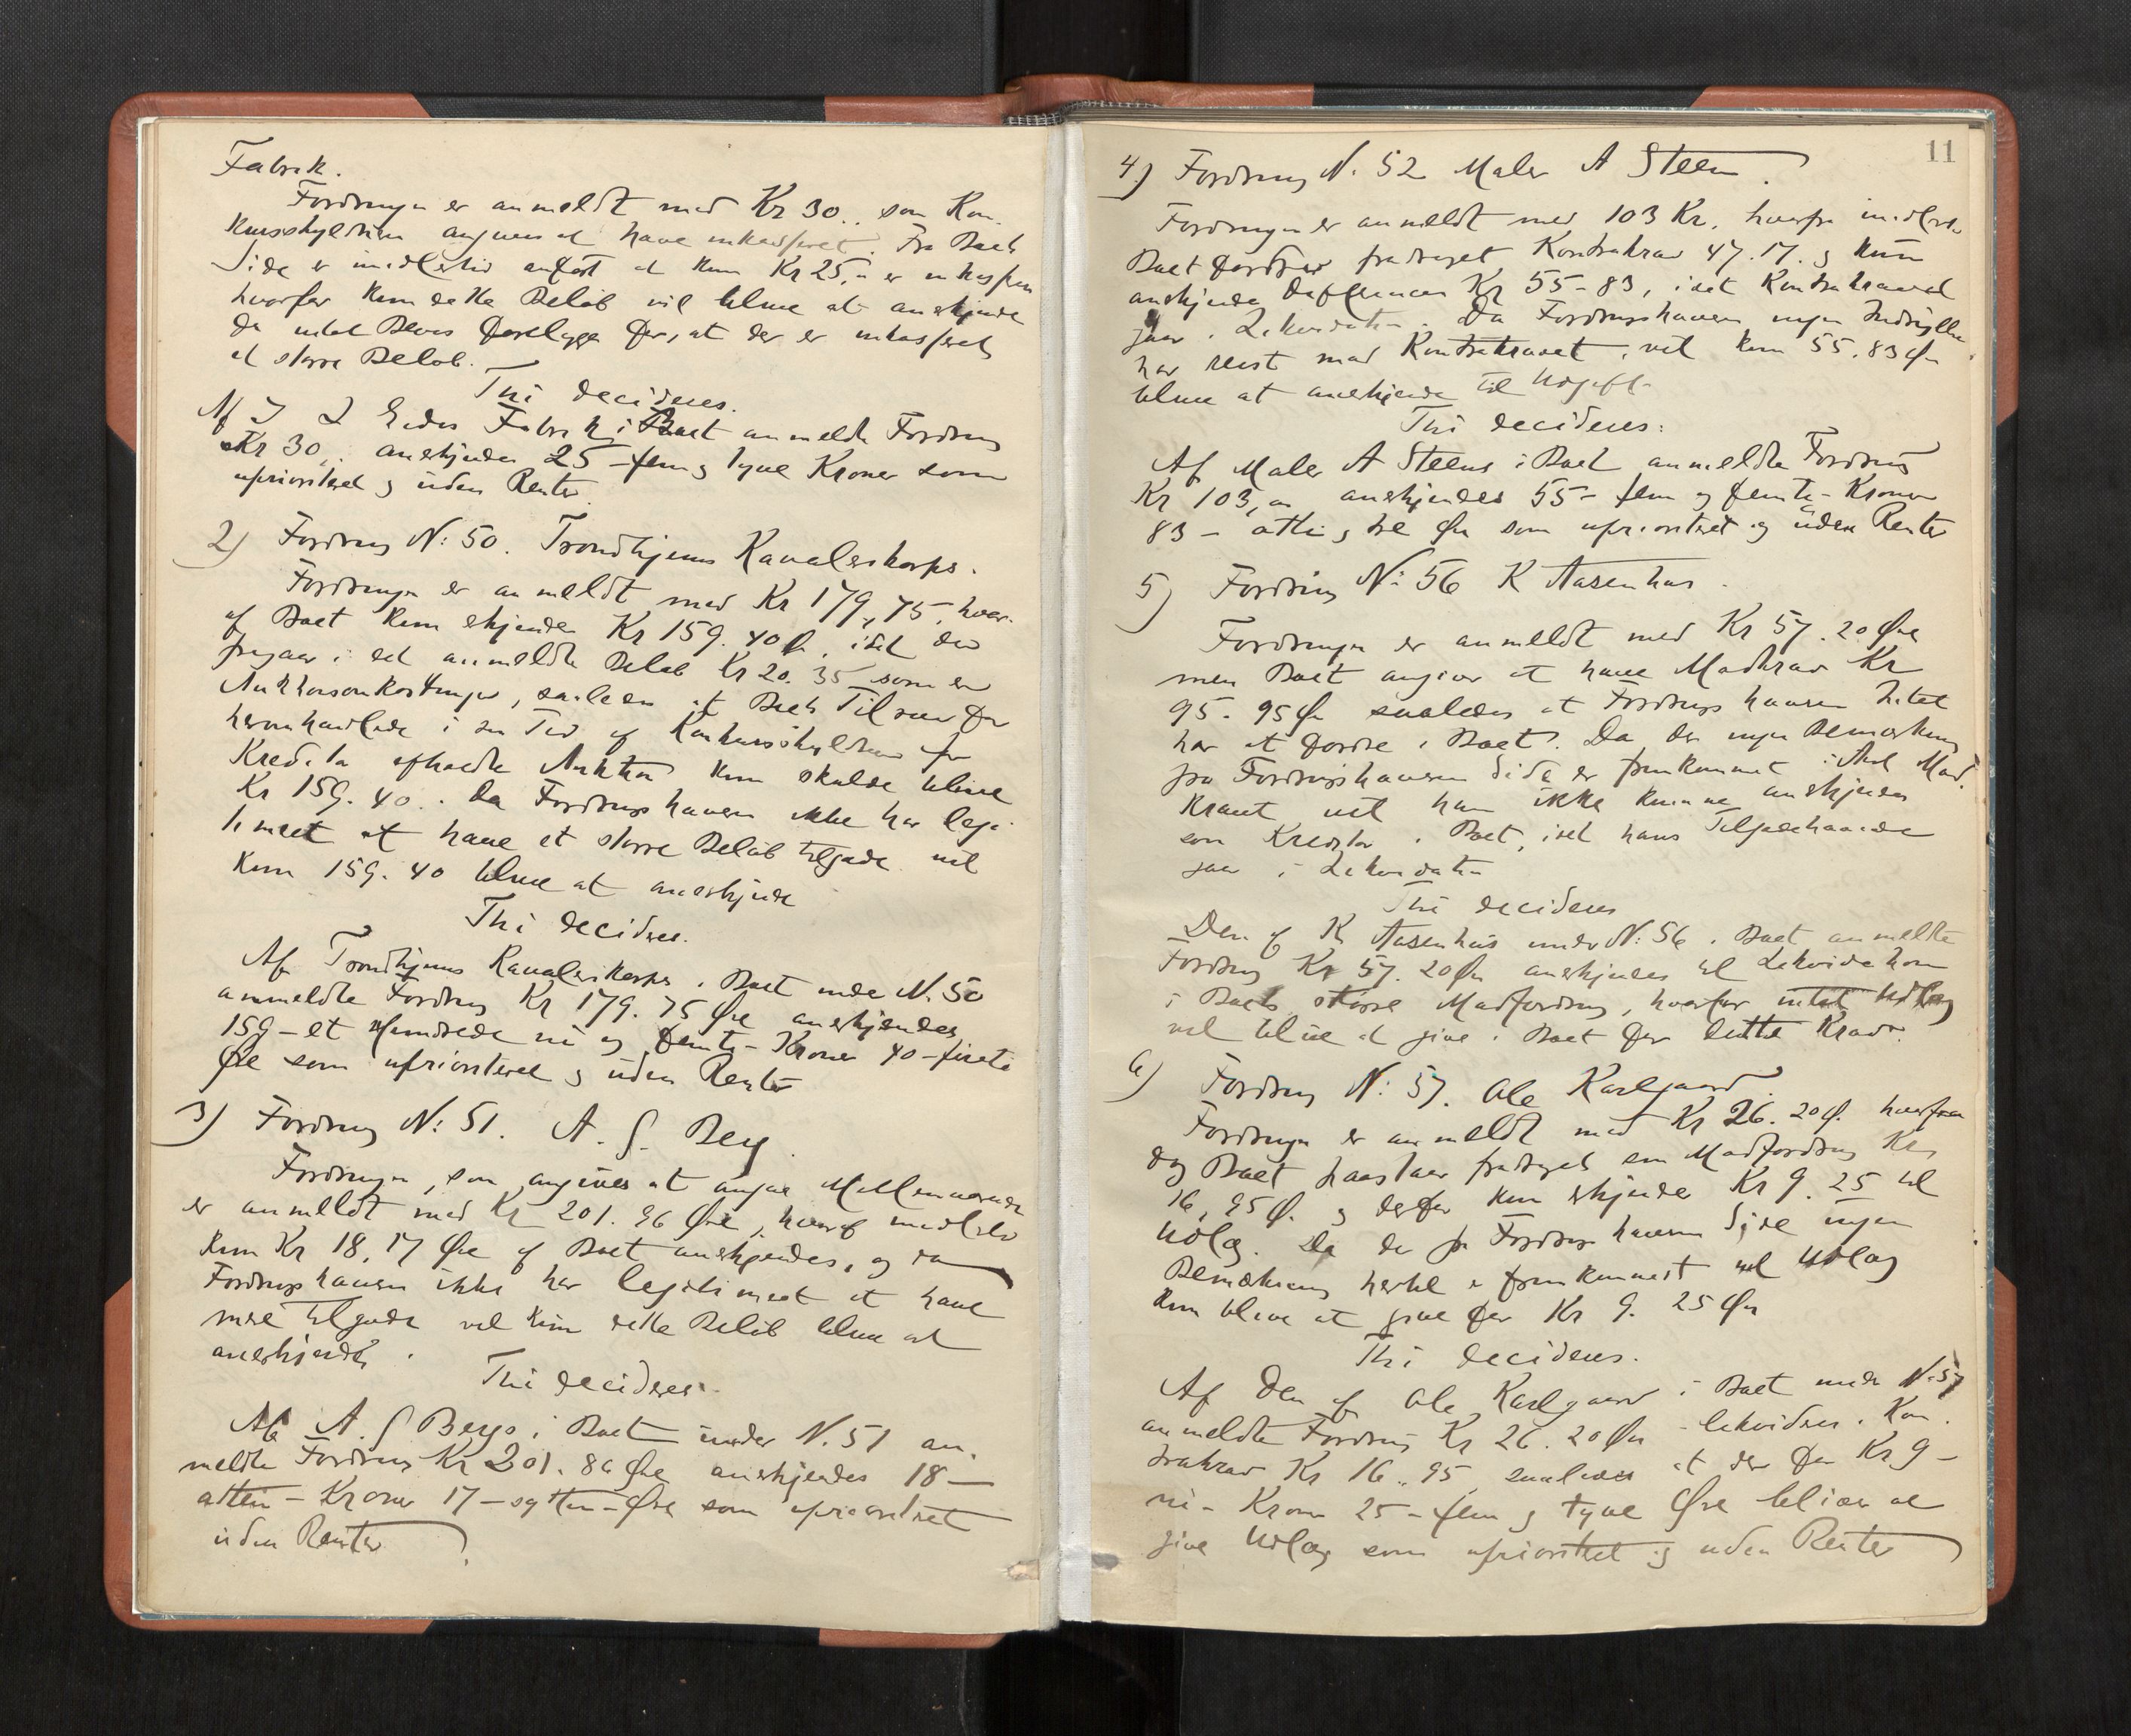 Fabrik.
Fordringen er anmeldt med Kr 30.. som Kon-
kursskyldneren angives at have inkasseret. Fra Boets
Side er imidlertid anført at kun Kr 25,- er inkasseret
hvorfor kun dette Beløb vil blive at anerkjende
da intet Bevis foreligger for, at der er inkasseret
et større Beløb.
Thi decideres.
Af J L Eides Fabrik i Boet anmeldte Fordring
Kr 30,. anerkjendes 25 - fem og tyve Kroner som
uprioriteret og uden Renter.
2) Fordring N: 50. Trondhjems Kavalerikorps.
Fordringen er anmeldt med Kr 179,75, hvor-
af Boet kun erkjender Kr 159.40 Ø, idet der
fragaar i det anmeldte Beløb Kr 20.35 som er
Auktionsomkostninger, saaledes at Boets Tilsvar for
heromhandlede i sin Tid af Konkursskyldneren for
Kreditor afholdte Auktion kun skulde blive
Kr 159.40.. Da Fordringshaveren ikke har legi-
timeret at have et større Beløb tilgode vil
kun 159.40 blive at anerkjende
Thi decideres.
Af Trondhjems Kavalerikorps i Boet under N. 50
anmeldte Fordring Kr 179.75 Øre anerkjendes
159 - et Hundrede ni og femti - Kroner 40 - firti
Øre som uprioriteret og uden Renter
3) Fordring N: 51. A. S. Berg.
Fordringen, som angives at angaa Mellemværende
er anmeldt med Kr 201.86 Øre, hvoraf imidlertid
kun Kr 18,17 Øre af Boet anerkjendes, og da
Fordringshaveren ikke har legitimeret at have
mere tilgode vil kun dette Beløb blive at
anerkjende.
Thi decideres.
Af A. S Bergs i Boet under N. 51 an-
meldte Fordring Kr 201.86 Øre anerkjendes 18 -
atten - Kroner 17 - sytten - Øre som uprioriteret
uden Renter.
11
4) Fordring N. 52 Maler A Steen.
Fordringen er anmeldt med 103 Kr. hvorfra imidlertid
Boet fordrer fradraget Kontrakrav 47.17. og kun
anerkjende Differencen Kr 55-83, idet Kontrakravet
gaar i Likvidation. Da Fordringshaveren ingen Indsigelse
har reist mod Kontrakravet, vil kun 55.83 Øre
blive at anerkjende til Udgift
Thi decideres:
Af Maler A Steens i Boet anmeldte Fordring
Kr 103,00 anerkjendes 55 - fem og femti - Kroner
83 - otti og tre Øre som uprioriteret og uden Renter
5) Fordring N: 56 K Aasenhus.
Fordringen er anmeldt med Kr 57.20 Øre
men Boet angiver at have Modkrav Kr
95.95 Øre saaledes at Fordringshaveren Intet
har at fordre i Boet. Da der ingen Bemærkning
fra Fordringshaverens Side er fremkommet imod Mod-
kravet vil han ikke kunne anerkjendes
som Kreditor i Boet, idet hans Tilgodehavende
gaar i Likvidation
Thi decideres
Den af K Aasenhus under N: 56 i Boet anmeldte
Fordring Kr 57.20 Øre anerkjendes til Likvidation
i Boets større Modfordring, hvorfor intet Udlæg
vil blive at give i Boet for dette Krav.
6) Fordring N: 57. Ole Karlgaard.
Fordringen er anmeldt med Kr 26.20 Ø. hvorfra
dog Boet paastaar fradraget en Modfordring Kr
16,95 Ø. og derfor kun erkjender Kr 9.25 til
Udlæg. Da der fra Fordringshaverens Side ingen
Bemærkning hertil er fremkommet vil Udlæg
kun blive at give for Kr 9.25 Øre
Thi decideres.
Af den af Ole Karlgaard i Boet under N. 57
anmeldte Fordring Kr 26.20 Øre likvideres i Kon-
trakrav Kr 16..95, saaledes at der for Kr 9 -
ni - Kroner 25 - fem og tyve Øre bliver at
give Udlæg som uprioriteret og uden Renter